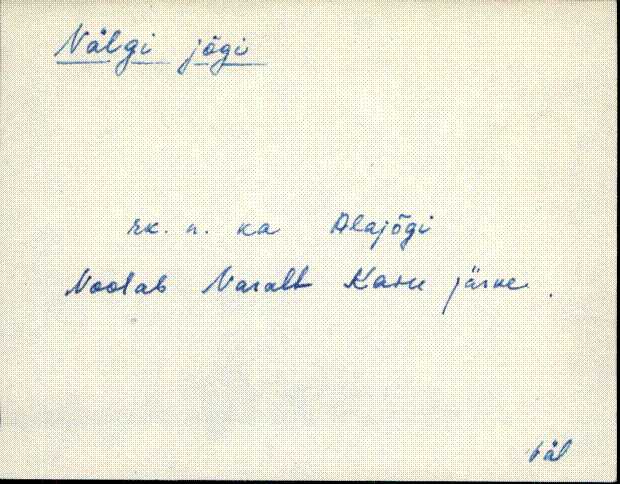 Nälgi jõgi
rk. n. ka Alajõgi
Voolab Vasalt Kasu järve.
Päl